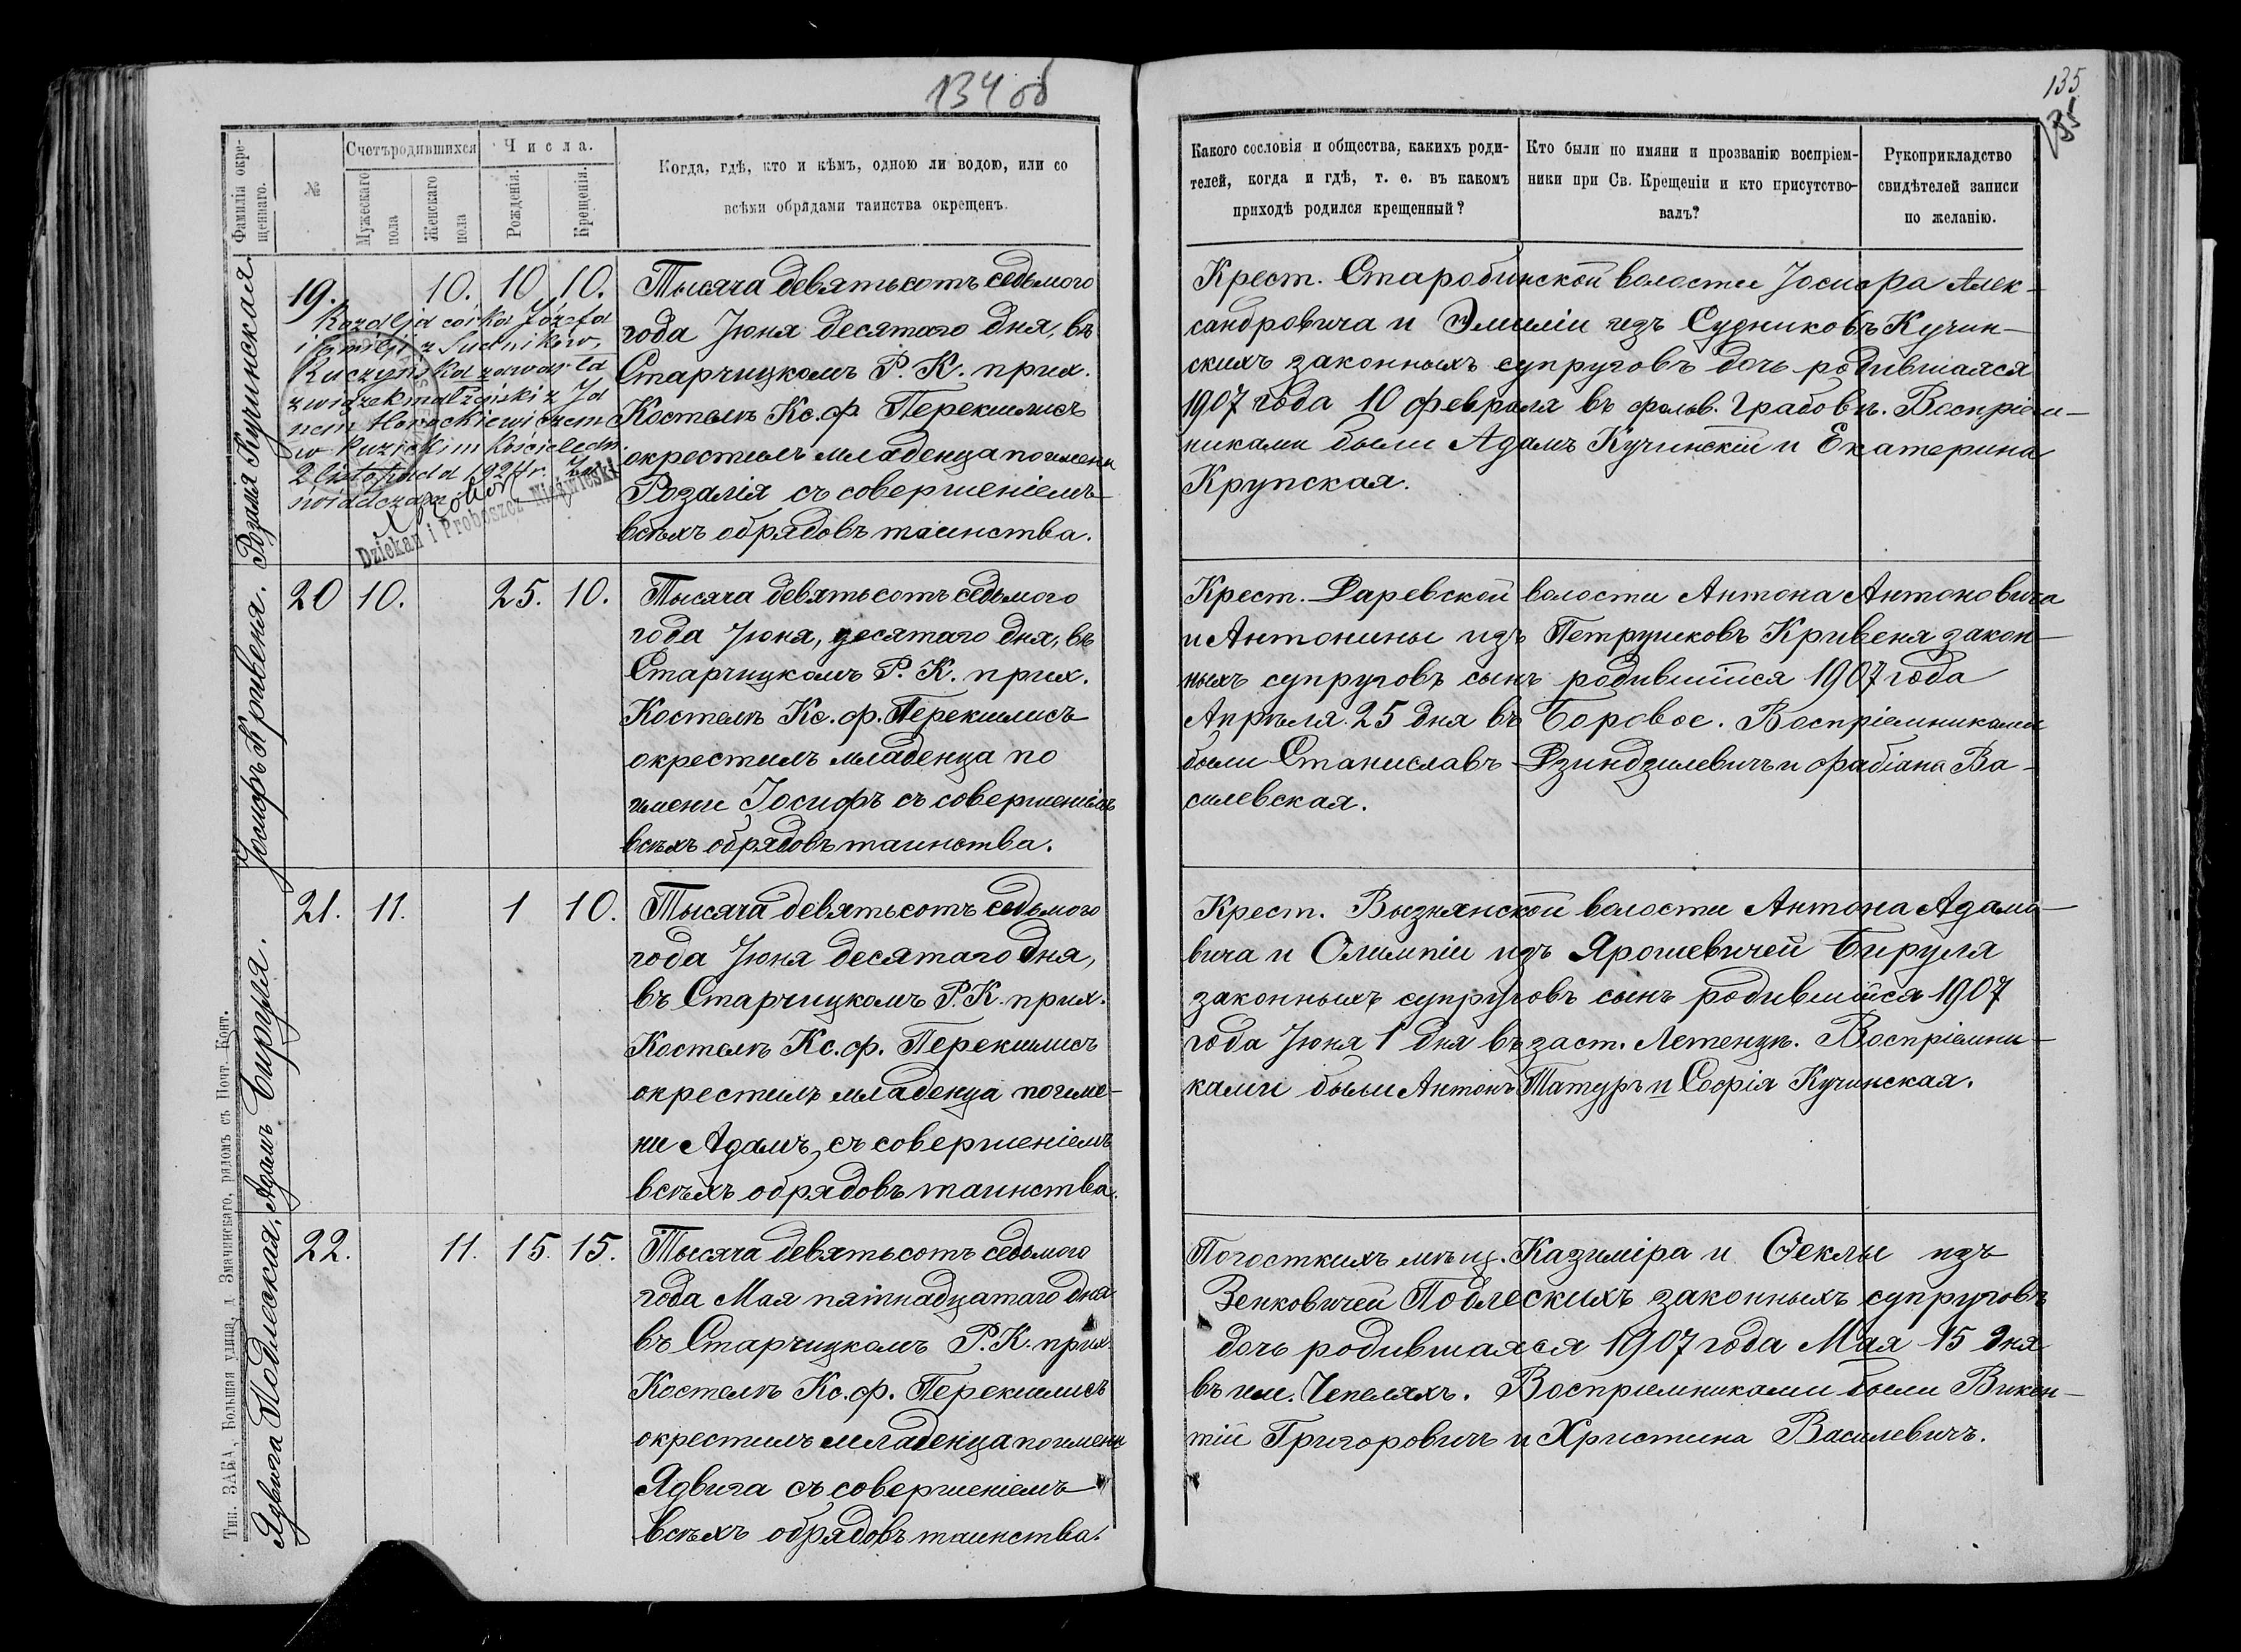 134 об
Фамилія окре-
щеннаго.
№
Счетъ родившихся
Мужескаго
пола
Женскаго
пола
Числа.
Рожденія.
Крещенія.
Когда, гдѣ, кто и кѣмъ, одною ли водою, или со
всѣми обрядами таинства окрещенъ.
Розалія Кучинская.
19. 10. 10 10.
Rozalja córka Józefa
i Emilji z Sudników,
Kuczyńska zawarła
związek małżeński z Ja
nem
w kościele
2 listopada 1924 r.
Dziekan i Proboszcz
Тысяча девятьсотъ седьмого
года Іюня десятаго дня, въ
Старчицкомъ Р. К. прих.
Костелѣ Кс. ф Перекшлисъ
окрестилъ младенца по имени
Розалія съ совершеніемъ
всѣхъ обрядовъ таинства.
Іосифъ Кривеня.
20 10. 25. 10.
Тысяча девятьсотъ седьмого
года Іюня, десятаго дня, въ
Старчицкомъ Р. К. прих.
Костелѣ Кс. ф. Перекшлисъ
окрестилъ младенца по
имени Іосифъ съ совершеніемъ
всѣхъ обрядовъ таинства.
Адамъ Бируля.
21. 11. 1 10.
Тысяча девятьсотъ седьмого
года Іюня десятаго дня,
въ Старчицкомъ Р. К. прих.
Костелѣ Кс. ф. Перекшлисъ
окрестилъ младенца по име-
ни Адамъ, съ совершеніемъ
всѣхъ обрядовъ таинства.
Ядвига Подлеская,
22. 11. 15. 15.
Тысяча девятьсотъ седьмого
года Мая пятнадцатаго дня
въ Старчицкомъ Р. К. прих.
Костелѣ Кс. ф. Перекшлисъ
окрестилъ младенца по имени
Ядвига съ совершеніемъ
всѣхъ обрядовъ таинства.
Тип. ЗАВА, Большая улица, д. Змачинскаго, рядомъ съ Почт. Конт.
135
Какого сословія и общества, какихъ роди-
телей, когда и гдѣ, т. е. въ какомъ
приходѣ родился крещенный?
Кто были по имяни и прозванію воспріем-
ники при Св. Крещеніи и кто присутство-
валъ?
Рукоприкладство
свидѣтелей записи
по желанію.
Крест. Старобинской волости Іосифа Алек-
сандровича и Эмиліи изъ Судниковъ Кучин-
скихъ законныхъ супруговъ дочь родившаяся
1907 года 10 февраля въ фольв. Грабовѣ. Воспріем-
никами были Адамъ Кучинскій и Екатерина
Крупская.
Крест. Даревской волости Антона Антоновича
и Антонины изъ Петрушковъ Кривеня закон-
ныхъ супруговъ сынъ родившійся 1907 года
Апрѣля 25 дня въ Боровое. Воспріемниками
были Станиславъ Дзиндзилевичъ и Фабіана Ва-
силевская.
Крест. Вызнянской волости Антона Адамо-
вича и Олимпіи изъ Ярошевичей Бируля
законныхъ супруговъ сынъ родившійся 1907
года Іюня 1 дня въ заст. Летенцѣ. Воспріемни-
ками были Антонъ Татуръ и Софія Кучинская.
Погосткихъ мѣщ. Казиміра и Ѳеклы изъ
Зенковичей Подлескихъ законныхъ супруговъ
дочь родившаяся 1907 года Мая 15 дня
въ им. Чепеляхъ. Воспріемниками были Викен-
тій Григоровичъ и Христина Василевичъ.